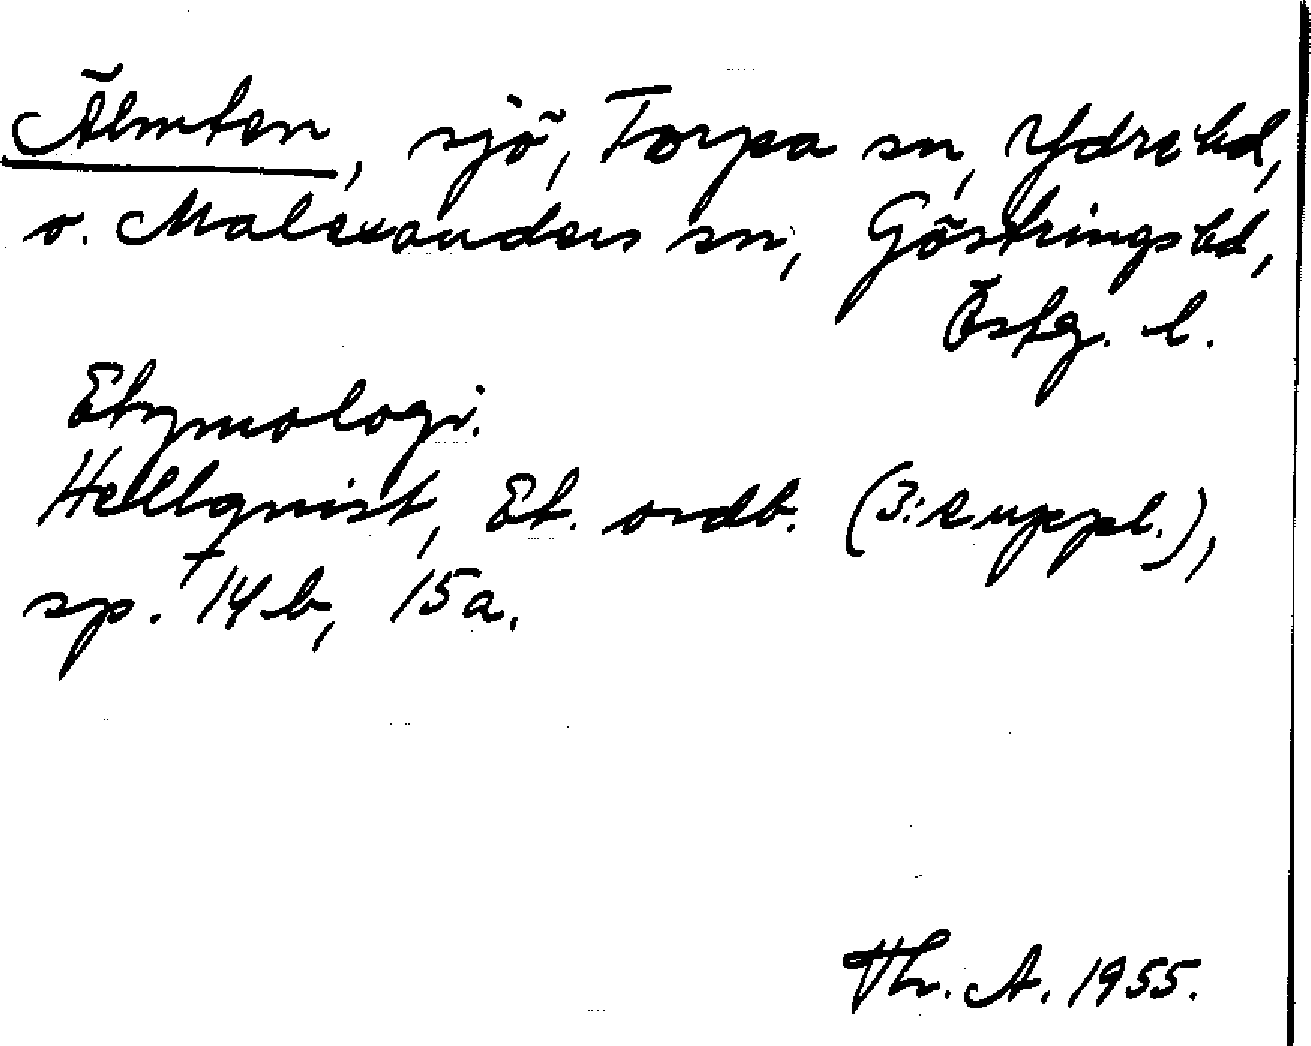 Älmten, sjö, Torpa sn, Ydre hd,
o. Malexanders sn, Göstrings hd,
Östg. l.
Etymologi.
Hellquist, Et. ordb. (3: suppl.),
sp. 14b, 15a.
Th. A. 1955.